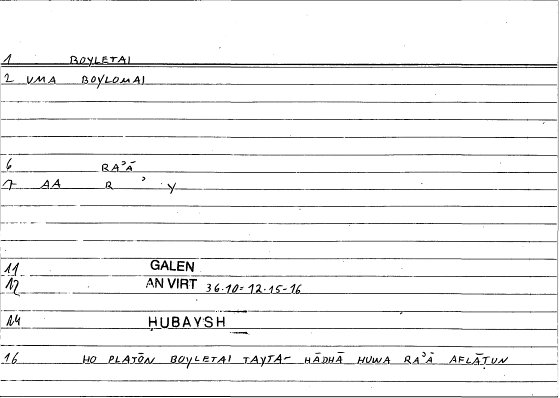 1 BOYLETAI
2 VMA BOYLOMAI
6 RAʾĀ
7 AA R ʾ Y
11 GALEN
12 AN VIRT 36.10=12.15-16
14 ḤUBAYSH
16 HO PLATŌN BOYLETAI TAYTA- HĀDHĀ HUWA RAʾĀ AFLĀṬUN